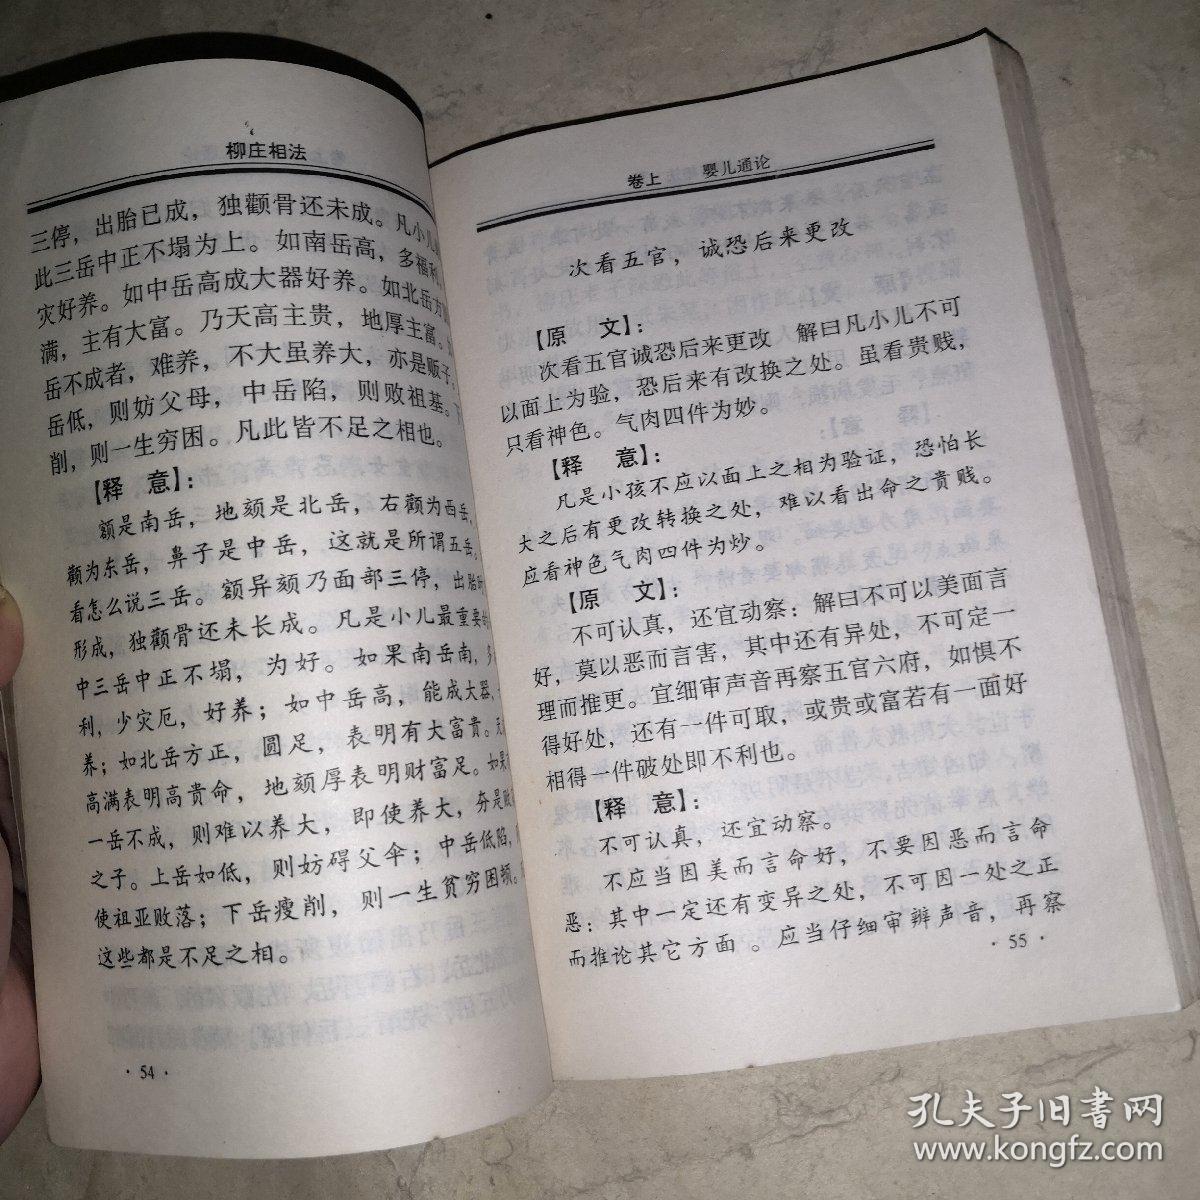 柳庄相法
三停，出胎已成，独颧骨还未成。凡小儿
此三岳中正不塌为上。如南岳高，多福利，
灾好养。如中岳高成大器好养。如北岳方
满，主有大富。乃天高主贵，地厚主富。
岳不成者，难养，不大虽养大，亦是贩子。
岳低，则妨父母，中岳陷，则败祖基。下
削，则一生穷困。凡此皆不足之相也。
【释 意】：
额是南岳，地颏是北岳，右颧为西岳，
颧为东岳，鼻子是中岳，这就是所谓五岳。
看怎么说三岳。额异颏乃面部三停，出胎时
形成，独颧骨还未长成。凡是小儿最重要的
中三岳中正不塌，为好。如果南岳南，多
利，少灾厄，好养；如中岳高，能成大器，
养；如北岳方正，圆足，表明有大富贵。天
高满表明高贵命，地颏厚表明财富足。如果
一岳不成，则难以养大，即使养大，夯是败
之子。上岳如低，则妨碍父伞；中岳低陷，
使祖亚败落；下岳瘦削，则一生贫穷困顿。
这些都是不足之相。
· 54 ·
卷上 婴儿通论
次看五官，诚恐后来更改
【原 文】：
次看五官诚恐后来更改 解曰凡小儿不可
以面上为验，恐后来有改换之处。虽看贵贱，
只看神色。气肉四件为妙。
【释 意】：
凡是小孩不应以面上之相为验证，恐怕长
大之后有更改转换之处，难以看出命之贵贱。
应看神色气肉四件为炒。
【原 文】：
不可认真，还宜动察：解曰不可以美面言
好，莫以恶而言害，其中还有异处，不可定一
理而推更。宜细审声音再察五官六府，如惧不
得好处，还有一件可取，或贵或富若有一面好
相得一件破处即不利也。
【释 意】：
不可认真，还宜动察。
不应当因美而言命好，不要因恶而言命
恶；其中一定还有变异之处，不可因一处之正
而推论其它方面 。应当仔细审辨声音，再察
· 55 ·
孔夫子旧书网
www.kongfz.com